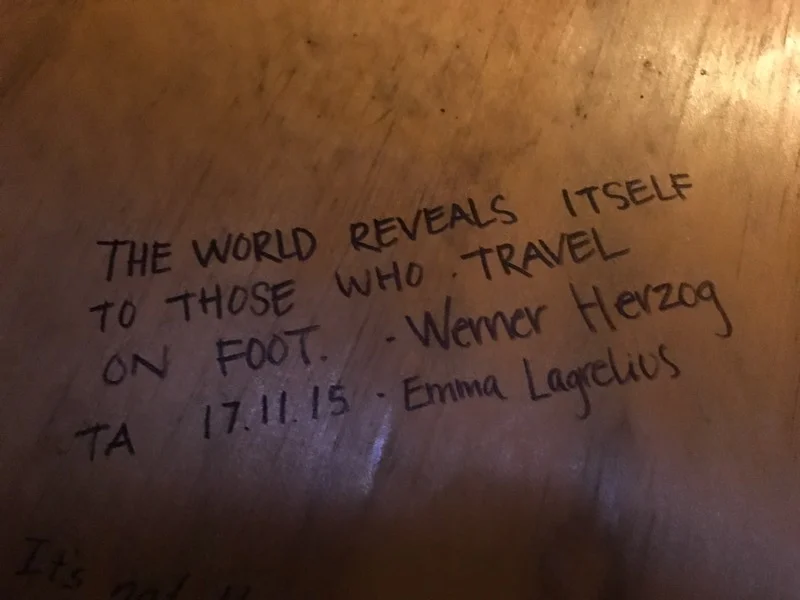 THE WORLD REVEALS ITSELF
TO THOSE WHO TRAVEL
ON FOOT. - Werner Herzog
TA 17.11.15 - Emma Lagrelius
It's not